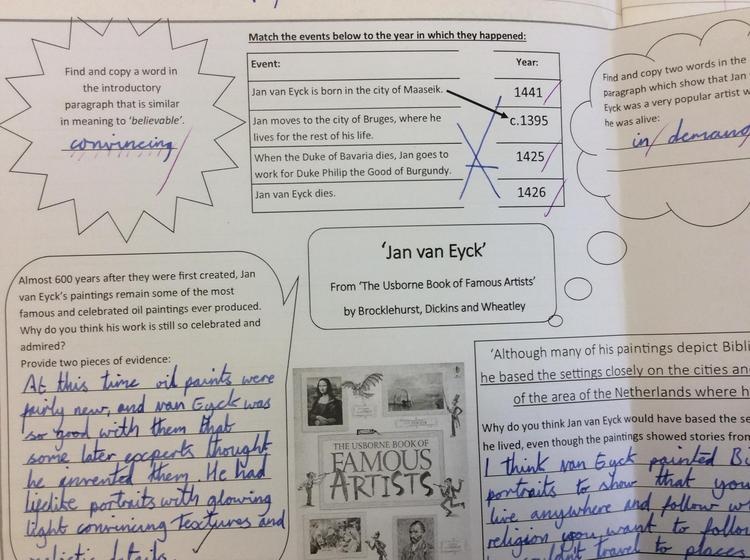 Match the events below to the year in which they happened:
Find and copy a word in
the introductory
paragraph that is similar
in meaning to 'believable'.
convincing
Event:
Year:
Jan van Eyck is born in the city of Maaseik.
1441
Jan moves to the city of Bruges, where he
lives for the rest of his life.
c.1395
When the Duke of Bavaria dies, Jan goes to
work for Duke Philip the Good of Burgundy.
1425
Jan van Eyck dies.
1426
Find and copy two words in the
paragraph which show that Jan
Eyck was a very popular artist w
he was alive:
in demand
'Jan van Eyck'
From 'The Usborne Book of Famous Artists'
by Brocklehurst, Dickins and Wheatley
Almost 600 years after they were first created, Jan
van Eyck's paintings remain some of the most
famous and celebrated oil paintings ever produced.
Why do you think his work is still so celebrated and
admired?
Provide two pieces of evidence:
At this time oil paints were
fairly new, and van Eyck was
so good with them that
some later experts thought
he invented them. He had
lifelike portraits with glowing
light convincing textures and
realistic details
THE USBORNE BOOK OF
FAMOUS
ARTISTS
'Although many of his paintings depict Bibli
he based the settings closely on the cities an
of the area of the Netherlands where h
Why do you think Jan van Eyck would have based the se
he lived, even though the paintings showed stories from
I think van Eyck painted Bi
portraits to show that you
live anywhere and follow w
religion you want to follo
travel to place